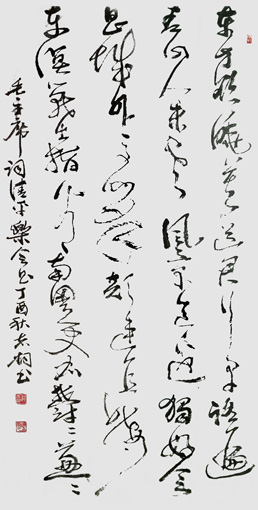 東方欲曉莫道君行早踏遍
青山人未老風景这边獨好会
昌城外高峰颠连直接
東溟战士指看南粤更加郁々葱々
毛主席词清平樂会昌丁酉秋书